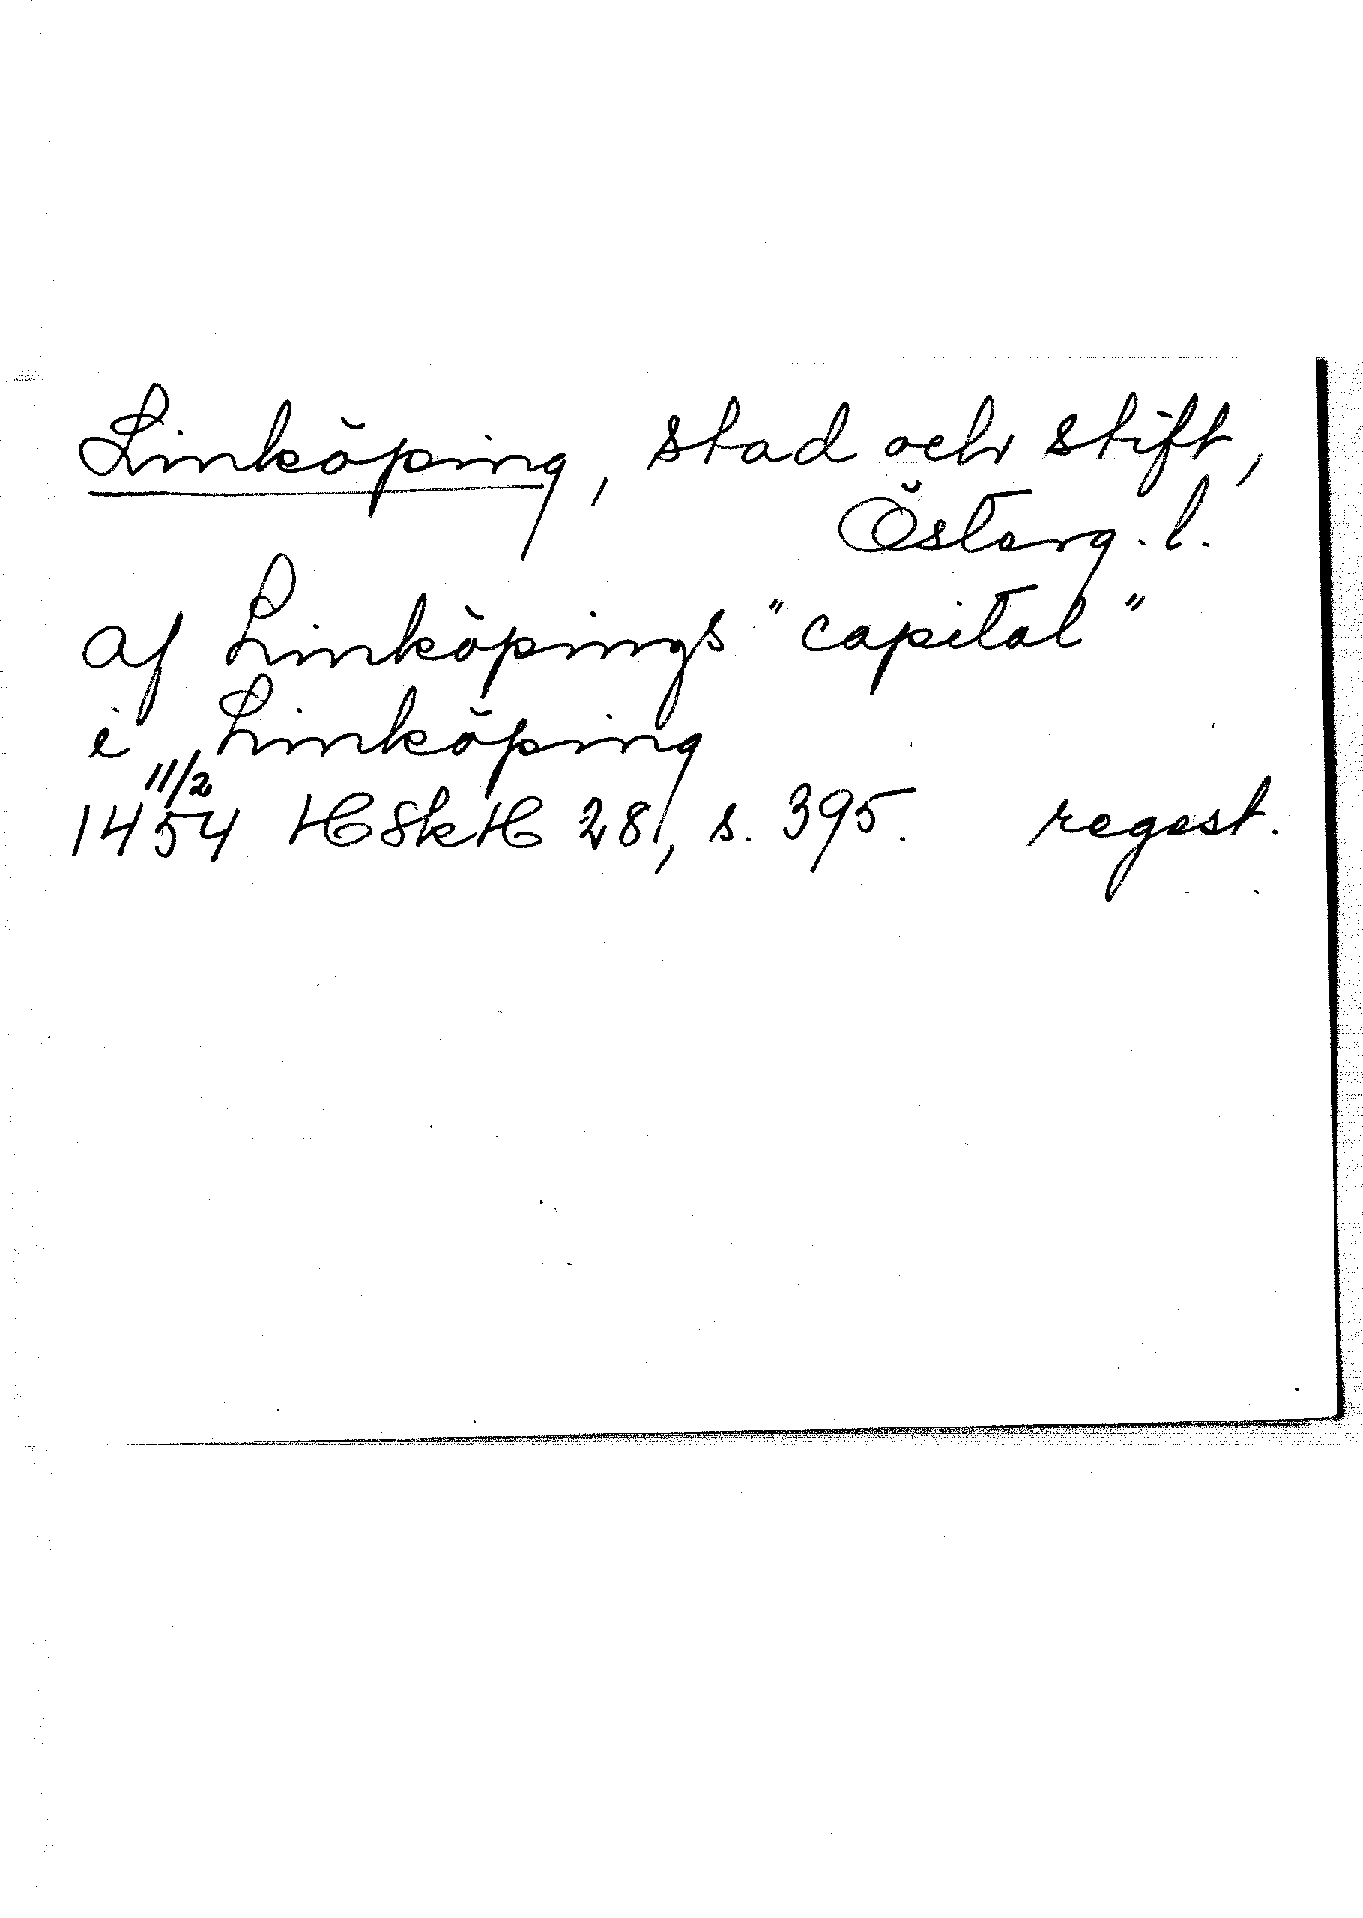 Linköping, stad och stift,
Österg. l.
af Linköpings "capital"
i Linköping
1454 11/2 HSkH 28, s. 395. regest.